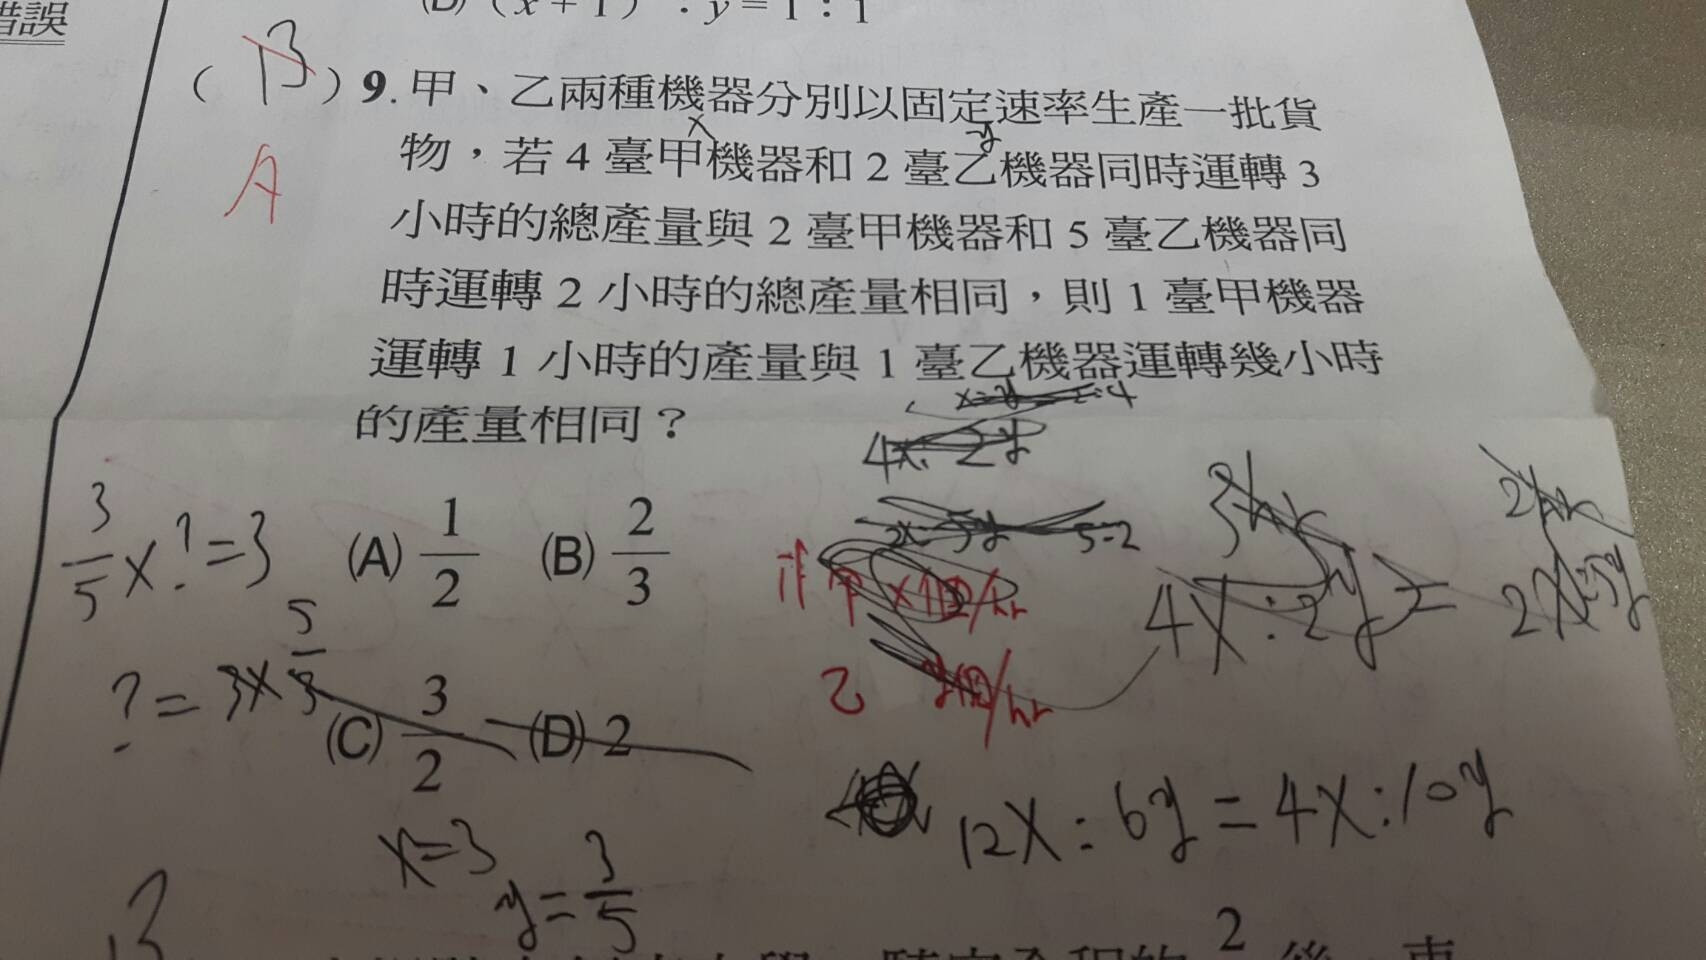 錯誤
(D) (x+1) : y = 1 : 1
( B ) 9. 甲、乙兩種機器分別以固定速率生產一批貨
A
x y
物，若 4 臺甲機器和 2 臺乙機器同時運轉 3
小時的總產量與 2 臺甲機器和 5 臺乙機器同
時運轉 2 小時的總產量相同，則 1 臺甲機器
運轉 1 小時的產量與 1 臺乙機器運轉幾小時
的產量相同？
4x: 2y
3/5 x ? = 3
(A) 1/2 (B) 2/3
3hr 2hr
4x : 2y = 2x:5y
甲 x個/hr
乙 y個/hr
? = 3x 5/3
(C) 3/2 (D) 2
12x : 6y = 4x:10y
x=3
y= 3/5
B
2 後，車